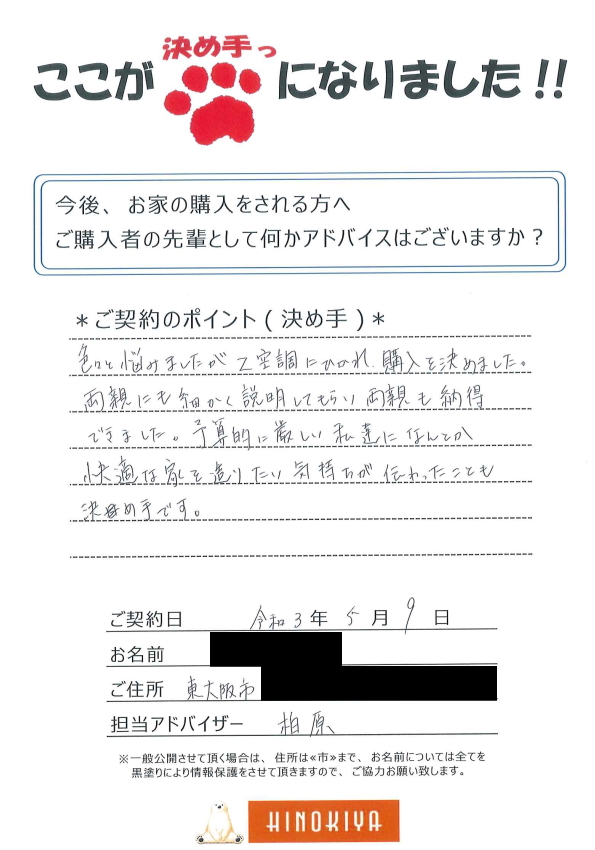 決め手っ
ここが になりました!!
今後、お家の購入をされる方へ
ご購入者の先輩として何かアドバイスはございますか?
*ご契約のポイント(決め手)*
色々と悩みましたが Z空調にひかれ、購入を決めました。
両親にも細かく説明してもらい両親も納得
できました。予算的に厳しい私達になんとか
快適な家を造りたい気持ちが伝わったことも
決め手です。
ご契約日 令和3年5月9日
お名前
ご住所 東大阪市
担当アドバイザー 柏原
※一般公開させて頂く場合は、住所は≪市≫まで、お名前については全てを
黒塗りにより情報保護をさせて頂きますので、ご協力お願い致します。
HINOKIYA